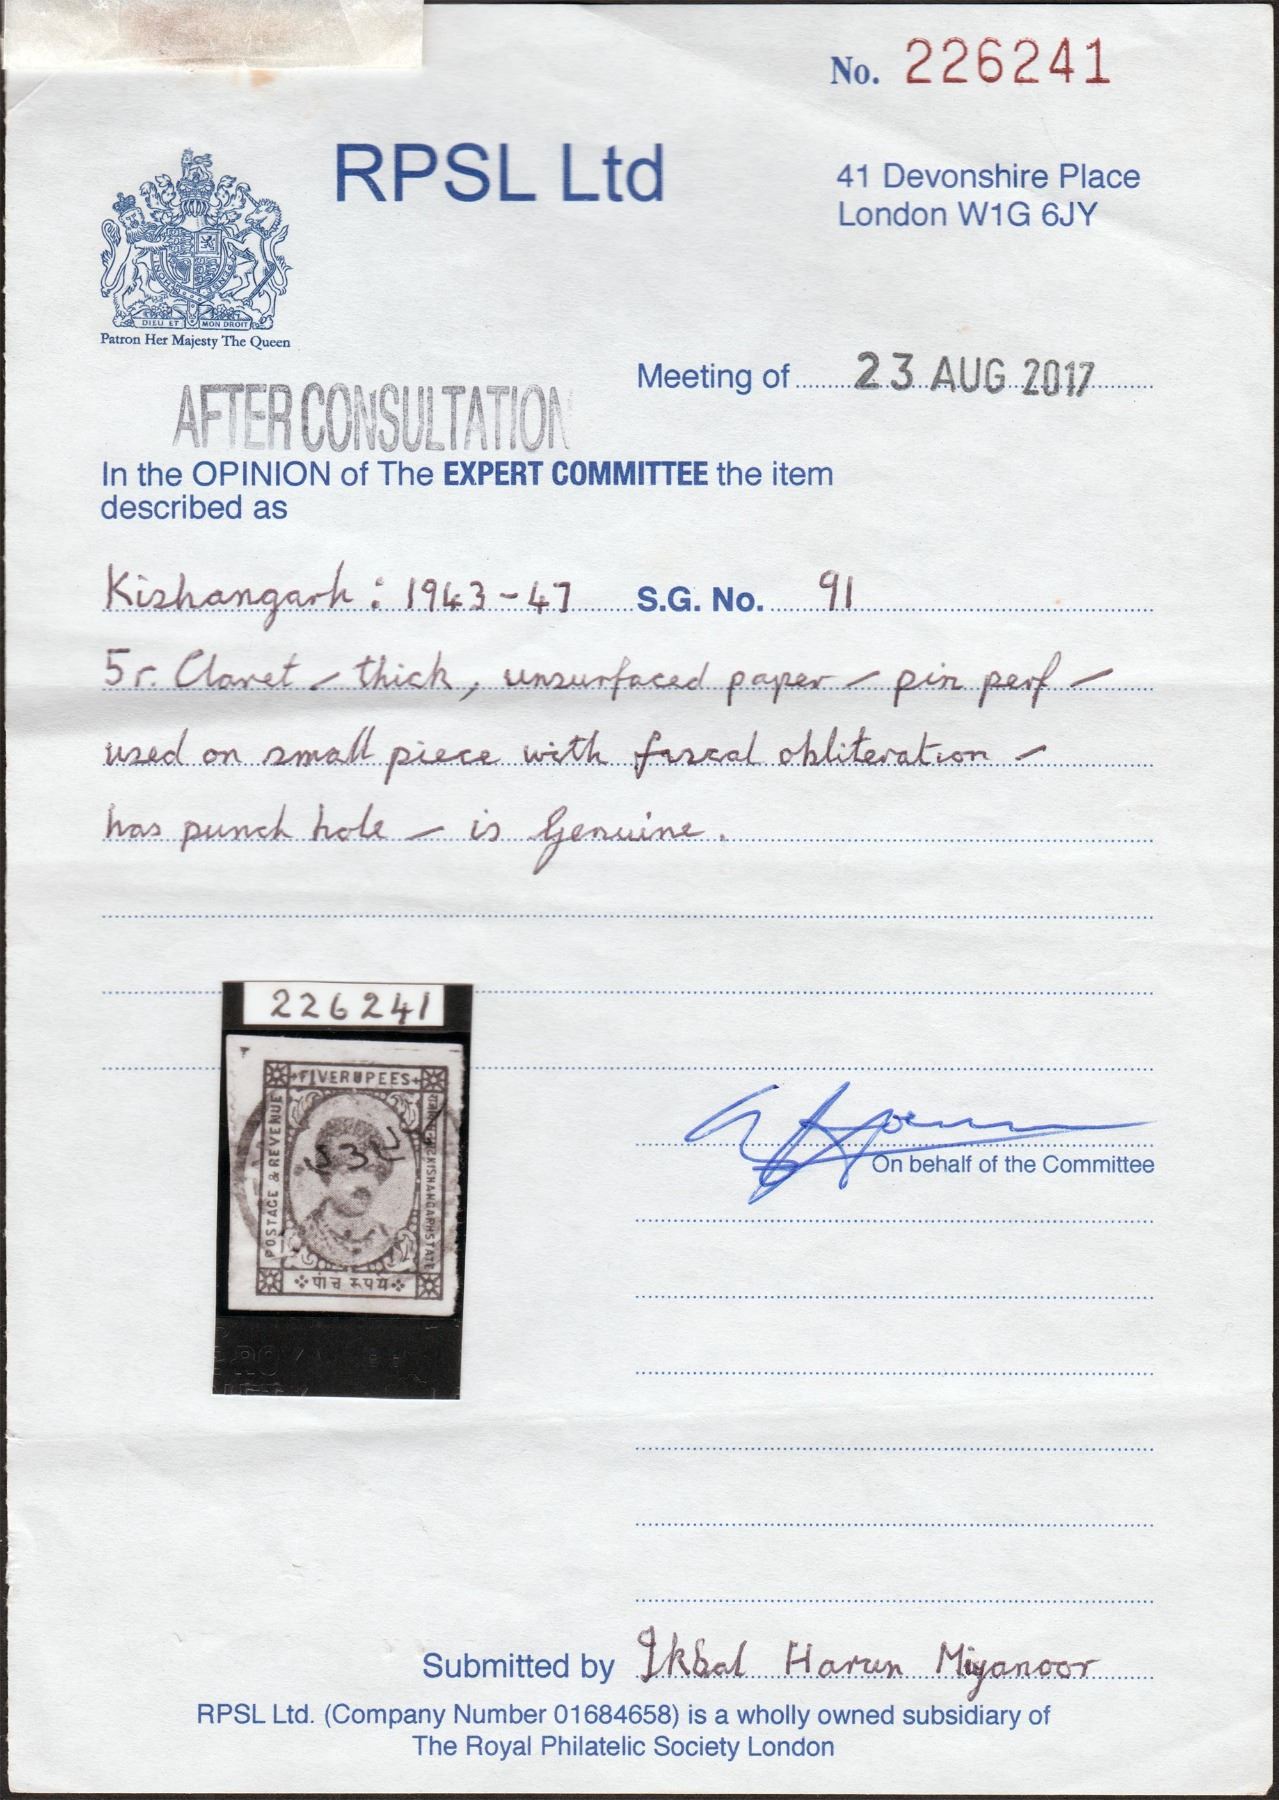 No. 226241
RPSL Ltd
41 Devonshire Place
London W1G 6JY
DIEU ET MON DROIT
Patron Her Majesty The Queen
Meeting of 23 AUG 2017
AFTER CONSULTATION
In the OPINION of The EXPERT COMMITTEE the item
described as
Kishangarh : 1943-47 S.G. No. 91
5r. Claret - thick, unsurfaced paper - pin perf -
used on small piece with fiscal obliteration -
has punch hole - is Genuine.
226241
FIVE RUPEES
POSTAGE & REVENUE
KISHANGARH STATE
पांच रूपये
On behalf of the Committee
Submitted by Ikbal Harun Miyanoor
RPSL Ltd. (Company Number 01684658) is a wholly owned subsidiary of
The Royal Philatelic Society London